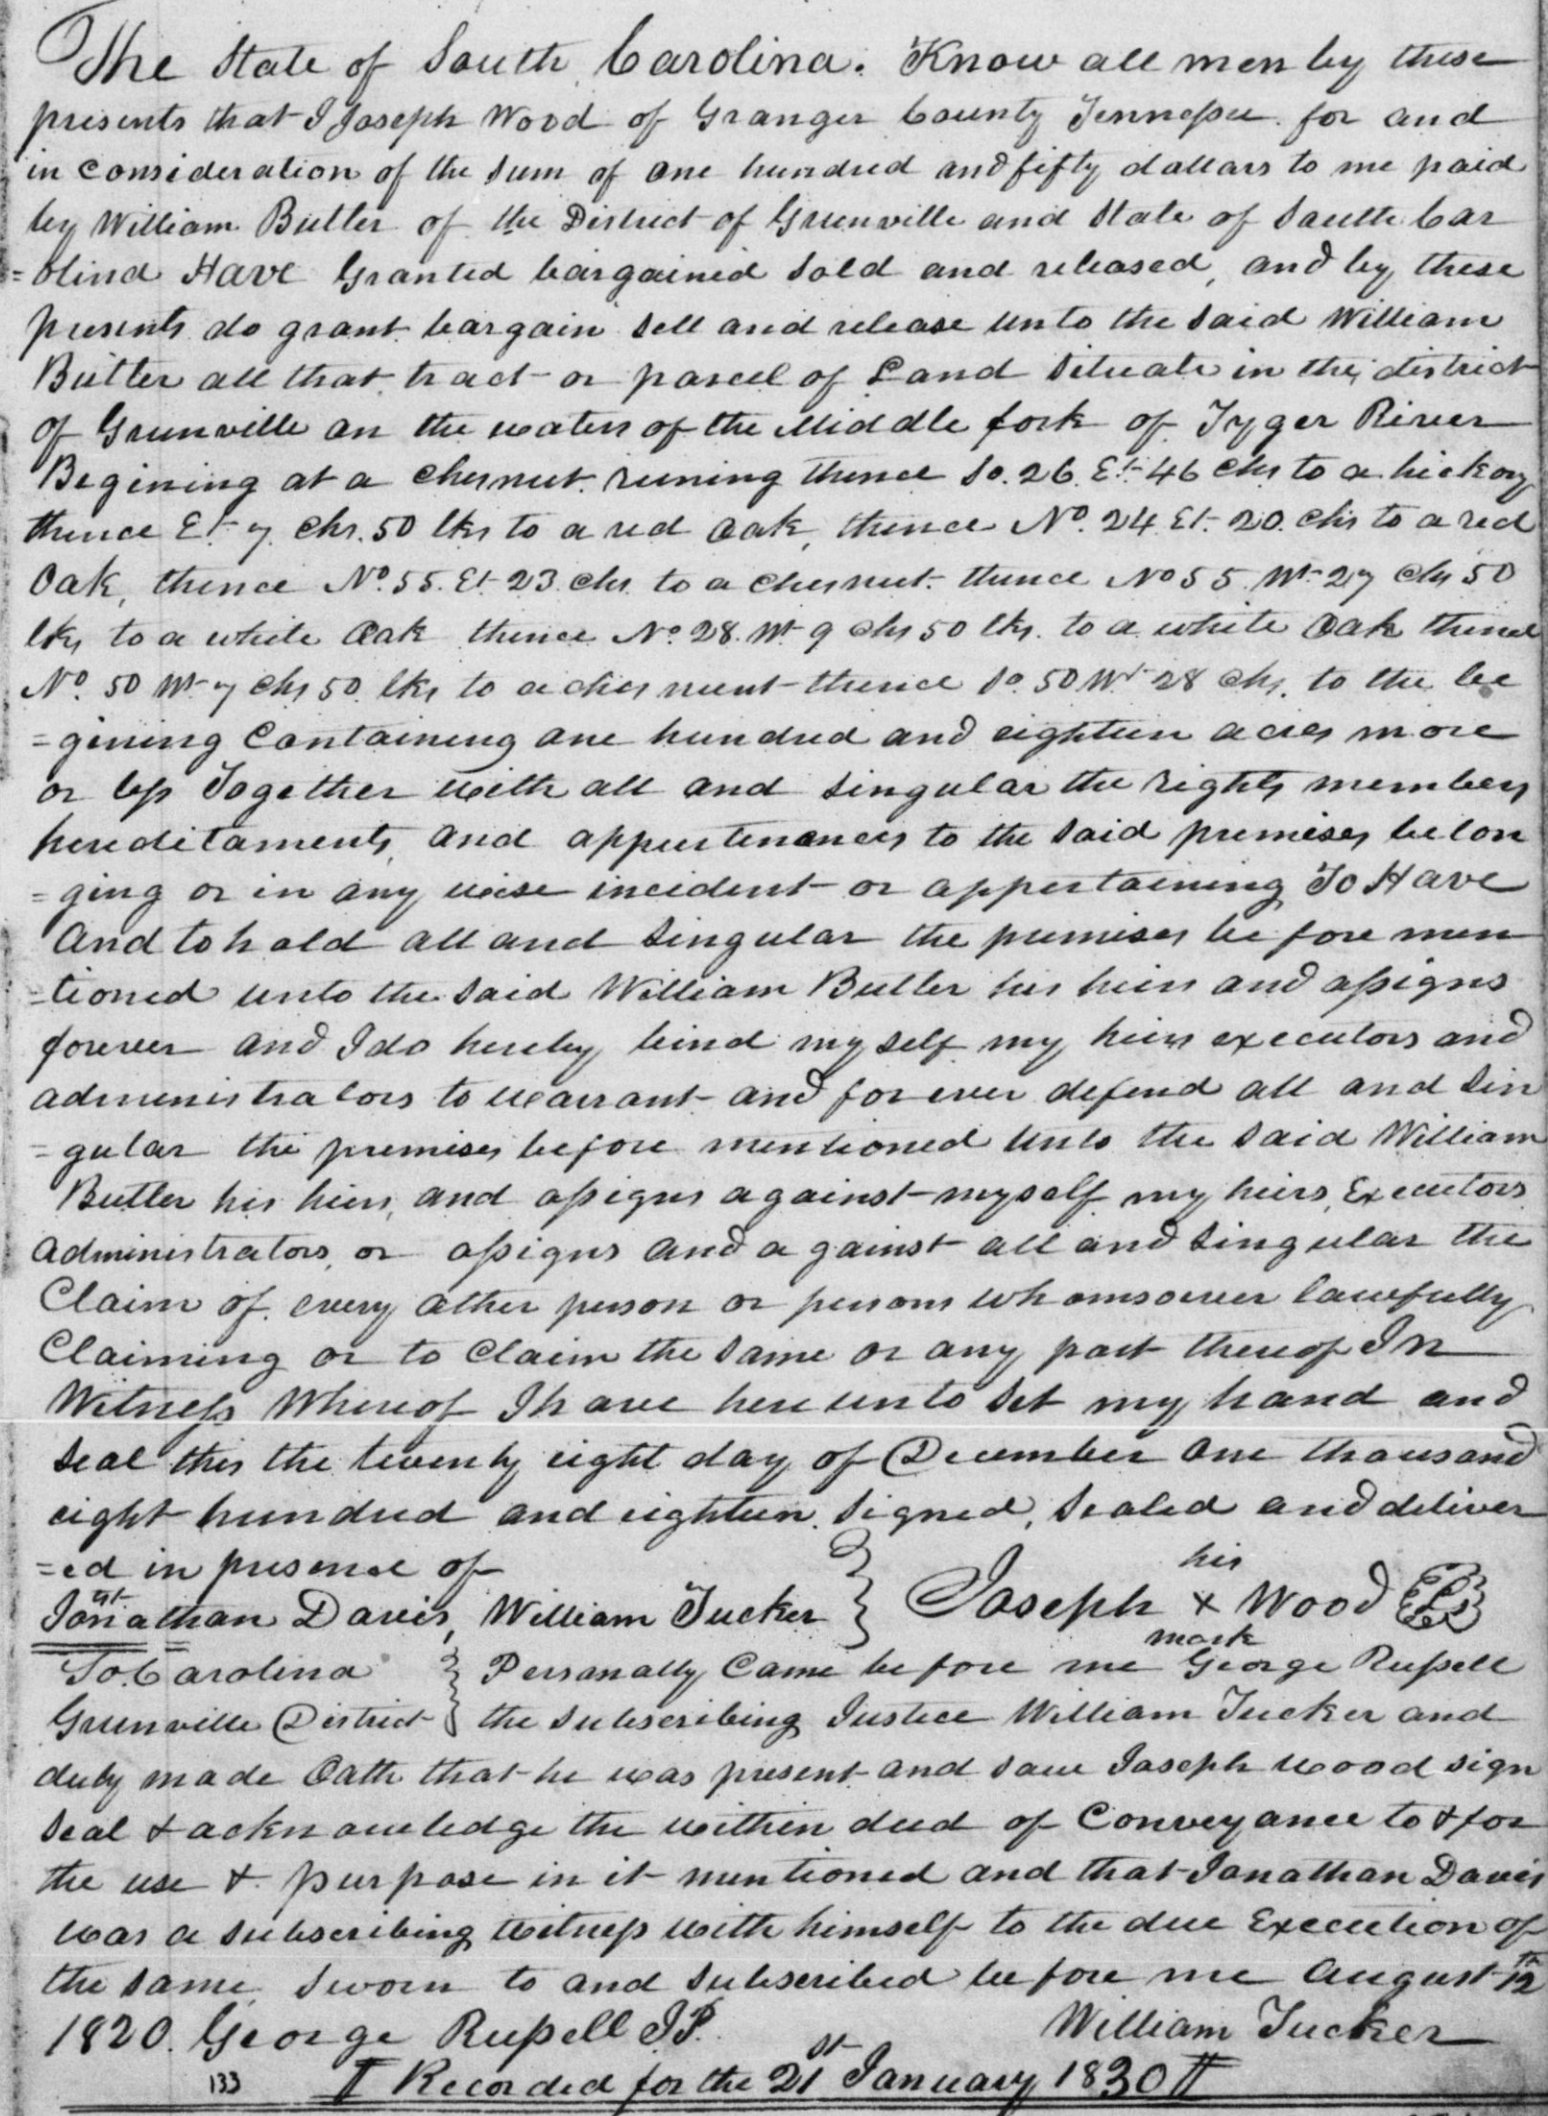 The State of South Carolina. Know all men by these
presents that I Joseph Wood of Granger County Tennessee for and
in consideration of the sum of one hundred and fifty dollars to me paid
by William Butler of the District of Greenville and State of South Car
=olina Have Granted bargained sold and released, and by these
presents do grant bargain sell and release unto the said William
Butler all that tract or parcel of Land situate in the district
of Greenville on the waters of the Middle fork of Tyger River
Begining at a Chesnut runing thence So. 26. Et. 46 Chs to a hickory
thence Et 7 Chs. 50 lks to a red Oak, thence No. 24 Et. 20. Chs to a red
Oak, thence No. 55. Et 23 Chs to a Chesnut. thence No 55 Wt 27 Chs 50
lks to a white Oak thence No. 28. Wt 9 Chs 50 lks. to a white Oak thence
No. 50 Wt 7 Chs 50 lks to a chesnunt thence So. 50 Wt 28 Chs. to the be
=gining Containing one hundred and eighteen acres more
or less Together with all and singular the rights members
hereditaments, and appurtenances to the said premises belon
=ging or in any wise incident or appertaining To Have
And to hold all and singular the premises before men
=tioned unto the said William Butler his heirs and assigns
forever and I do hereby bind my self my heirs executors and
administrators to warrant and for ever defend all and sin
=gular the premises before mentioned unto the said William
Butler his heirs, and assigns against myself my heirs, Executors
Administrators, or assigns and against all and singular the
Claim of every other person or persons whomsoever lawfully
Claiming or to Claim the same or any part thereof In
Witness Whereof I have hereunto set my hand and
seal this the twenty eight day of December one thousand
eight hundred and eighteen. signed, sealed and deliver
=ed in presence of
Jonathan Davis, William Tucker } Joseph his x mark Wood LS
So. Carolina } Personally Came before me George Russell
Greenville District } the subscribing Justice William Tucker and
duly made Oath that he was present and saw Joseph Wood sign
seal & acknowledge the within deed of Conveyance to & for
the use & purpose in it mentioned and that Jonathan Davis
was a subscribing witness with himself to the due Execution of
the same. Sworn to and subscribed before me August 12th
1820. George Russell J.P. William Tucker
133 Recorded for the 21st January 1830